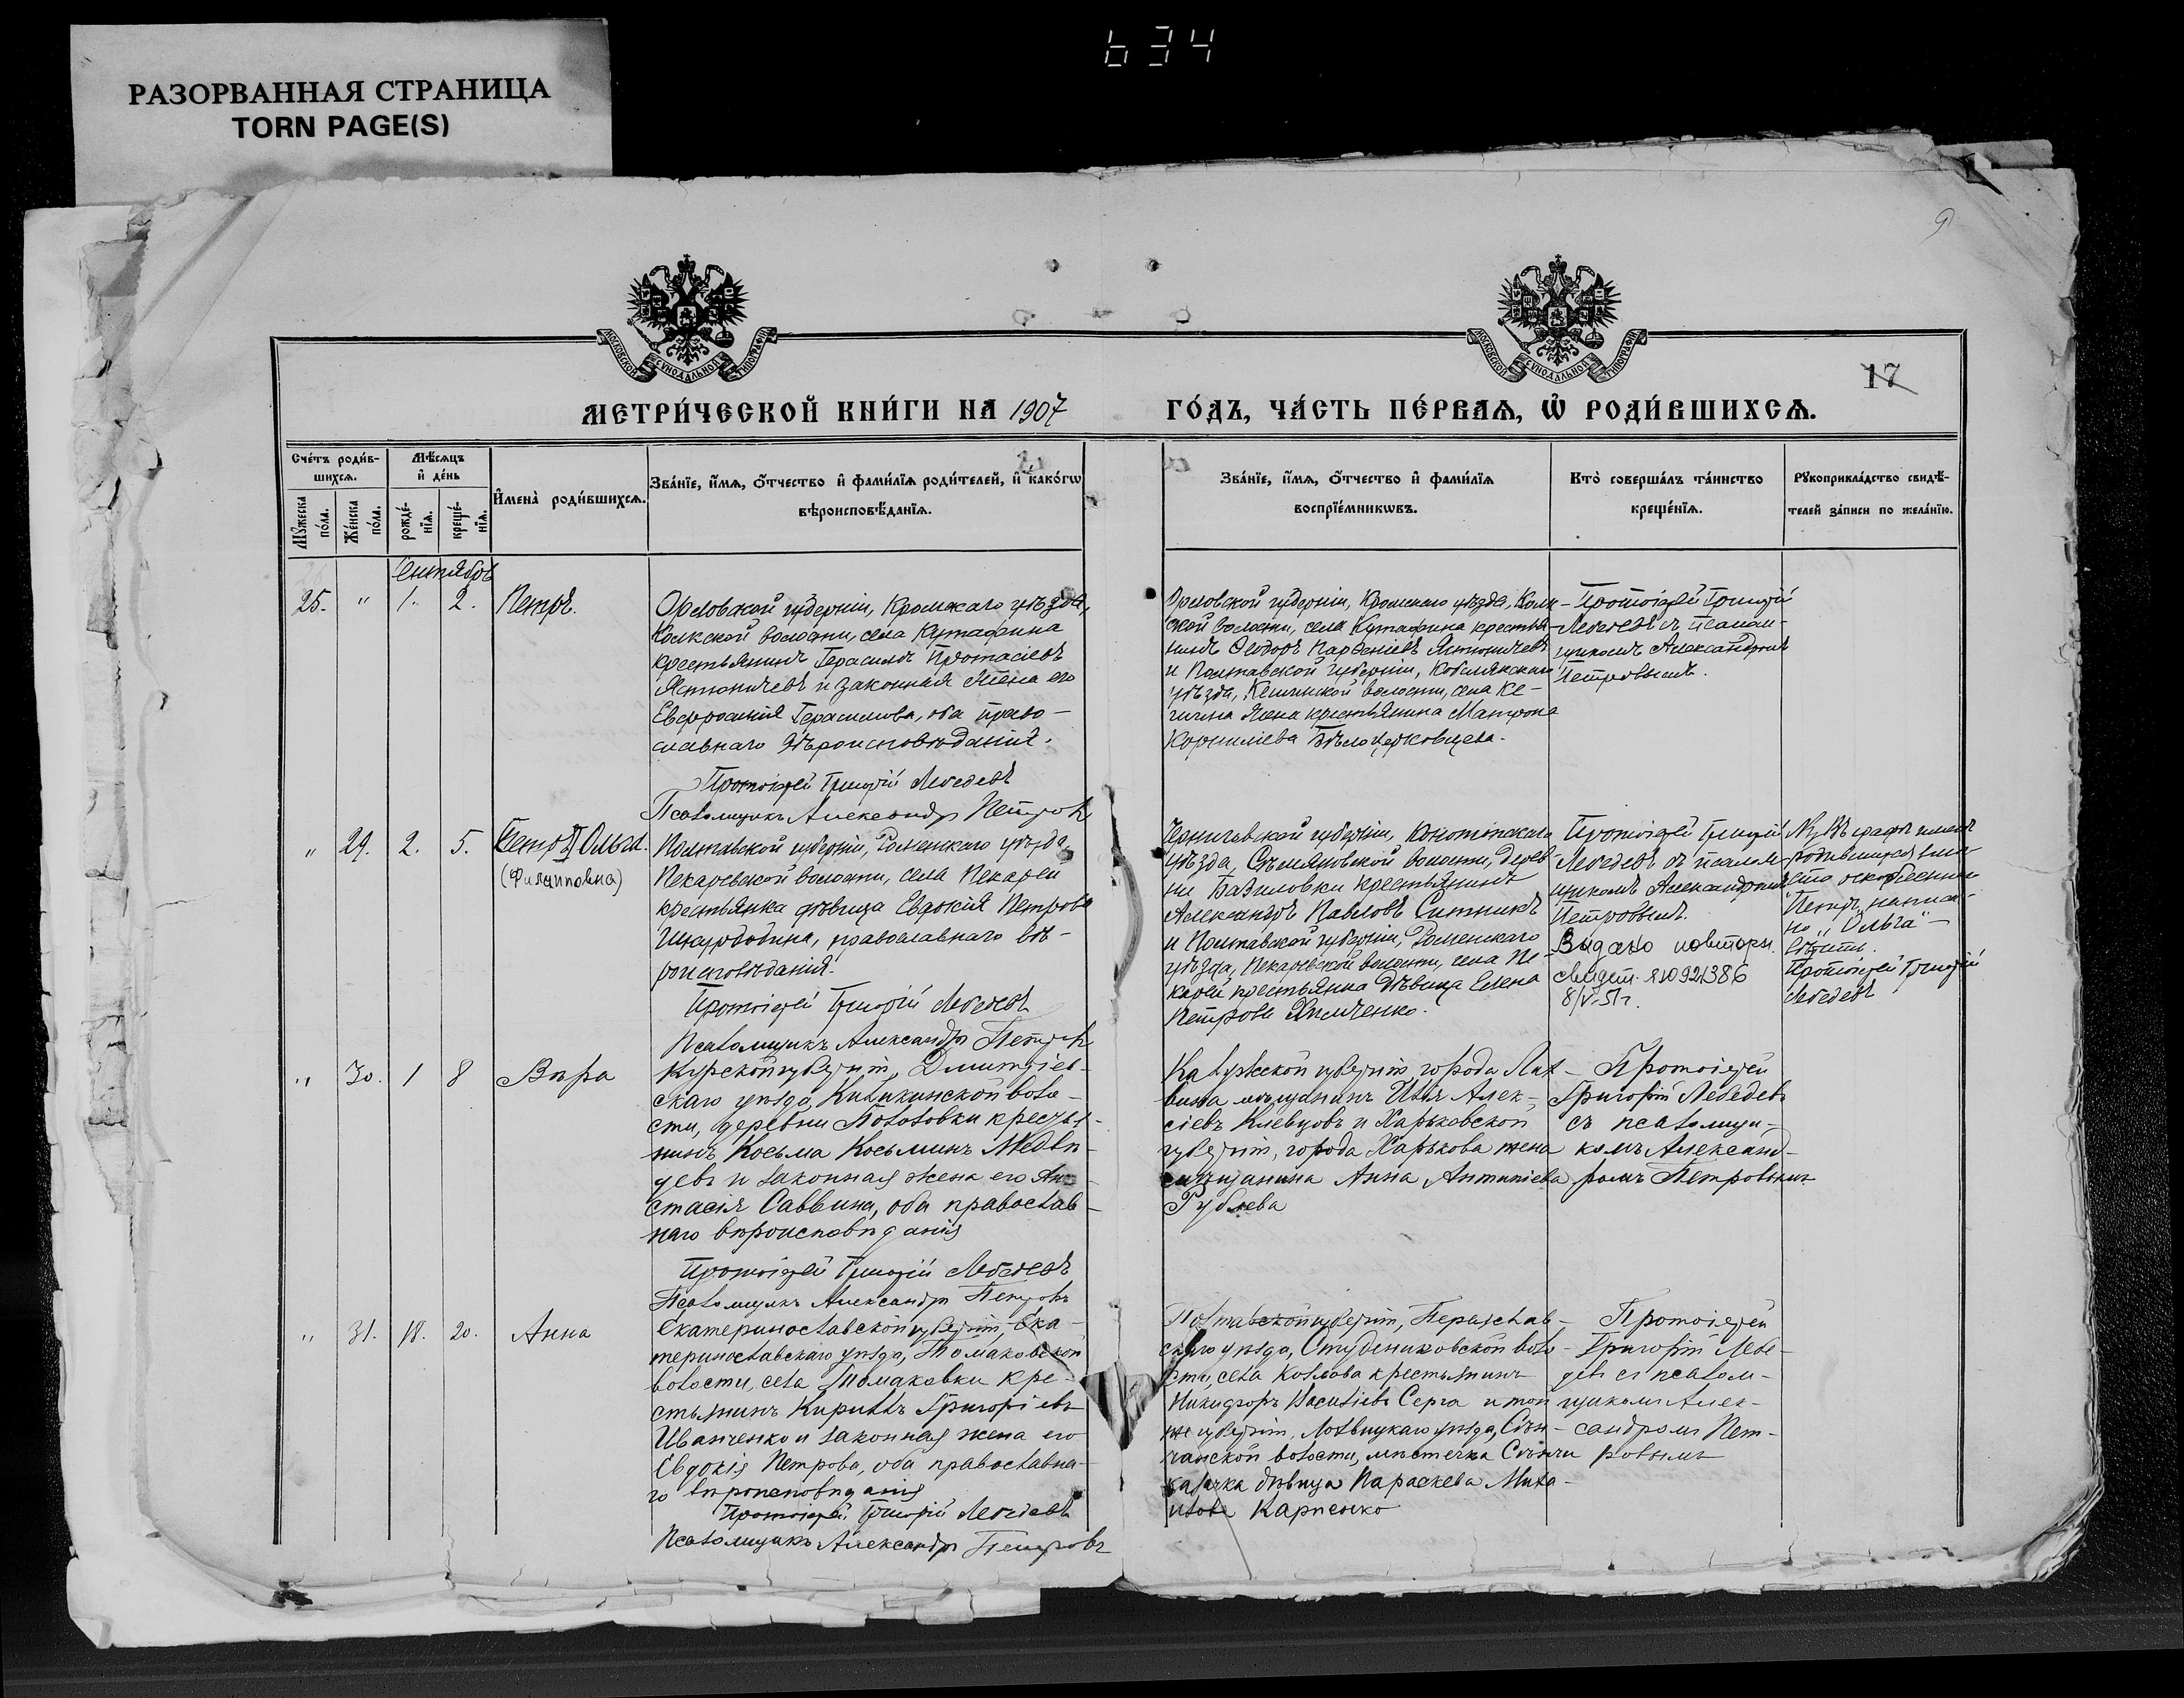 РАЗОРВАННАЯ СТРАНИЦА
TORN PAGE(S)
634
9
МОСКОВСКОЙ СѴНОДАЛЬНОЙ ТИПОГРАФІИ
МОСКОВСКОЙ СѴНОДАЛЬНОЙ ТИПОГРАФІИ
17
МЕТРИ́ЧЕСКОЙ КНИ́ГИ НА 1907 ГО́ДЪ, ЧА́СТЬ ПЕ́РВАѦ, Ѡ҆ РОДИ́ВШИХСѦ.
Сче́тъ роди́в-
шихсѧ.
Мꙋ́жеска по́ла.
Же́нска по́ла.
Мѣ́сѧцъ
и҆ де́нь
рожде́-
нїѧ.
креще́-
нїѧ.
И҆мена̀ роди́вшихсѧ.
Зва́нїе, и҆́мѧ, ѻ҆́тчество и҆ фами́лїѧ роди́телей, и҆ како́гѡ
вѣроисповѣ́данїѧ.
Зва́нїе, и҆́мѧ, ѻ҆́тчество и҆ фами́лїѧ
воспрїе́мникѡвъ.
Кто̀ соверша́лъ та́инство
креще́нїѧ.
Рꙋкоприкла́дство свидѣ́-
телей за́писи по жела́нїю.
Сентябрь
25. " 1. 2. Петръ.
Орловской губерніи, Кромскаго уѣзда,
волости, села Кутафина
крестьянинъ Герасимъ Протасіевъ
и законная жена его
Евфросинія Герасимова, оба право-
славнаго вѣроисповѣданія.
Протоіерей Григорій Лебедевъ
Псаломщикъ Александръ Петровъ
Орловской губерніи, Кромскаго уѣзда,
ской волости, села Кутафина крестья-
нинъ Ѳеодоръ Парѳеніевъ
и Полтавской губерніи, Кобелякскаго
уѣзда, волости, села Ке-
жена крестьянина Матрона
Корниліева Бѣлоцерковцева.
Протоіерей Григорій
Лебедевъ съ псалом-
щикомъ Александромъ
Петровымъ.
" 29. 2. 5. Петръ Ольга.
(Филипповна)
Полтавской губерніи, Роменскаго уѣзда,
Пекаревской волости, села Пекарей
крестьянка дѣвица Евдокія Петрова
православнаго вѣ-
роисповѣданія.
Протоіерей Григорій Лебедевъ
Псаломщикъ Александръ Петровъ
Черниговской губерніи, Конотопскаго
уѣзда, волости, дерев-
ни крестьянинъ
Александръ Павловъ Ситникъ
и Полтавской губерніи, Роменскаго
уѣзда, Пекаревской волости, села Пе-
карей крестьянка дѣвица Елена
Петрова
Протоіерей Григорій
Лебедевъ съ псалом-
щикомъ Александромъ
Петровымъ.
Видано повторн.
свидет. 1092386
8/V-51г.
Въ графѣ именъ
родившихся вмѣ-
сто
Петръ написа-
но „Ольга"-
вѣрить.
Протоіерей Григорій
Лебедевъ
" 30. 1 8 Вѣра
Курской губерніи, Дмитріев-
скаго уѣзда, воло-
сти, деревни крестья-
нинъ Косьма Косьминъ Медвѣ-
девъ и законная жена его Ана-
стасія Саввина, оба православ-
наго вѣроисповѣданія
Протоіерей Григорій Лебедевъ
Псаломщикъ Александръ Петровъ
Калужской губерніи, города Лих-
вина мѣщанинъ Илія Алек-
сіевъ Клевцовъ и Харьковской
губерніи, города Харькова жена
мѣщанина Анна Антипіева
Рублева
Протоіерей
Григорій Лебедевъ
съ псаломщи-
комъ Александ-
ромъ Петровымъ
" 31. 18. 20. Анна
Екатеринославской губерніи, Ека-
теринославскаго уѣзда, Томаковской
волости, села Томаковки кре-
стьянинъ Кириллъ Григоріевъ
Иванченко и законная жена его
Евдокія Петрова, оба православна-
го вѣроисповѣданія
Протоіерей Григорій Лебедевъ
Псаломщикъ Александръ Петровъ
Полтавской губерніи, Переяслав-
скаго уѣзда, Студениковской воло-
сти, села Козлова крестьянинъ
Никифоръ Василіевъ Серга и той
же губерніи, Лохвицкаго уѣзда, Сѣн-
чанской волости, мѣстечка Сѣнчи
казачка дѣвица Параскева Миха-
илова Карпенко
Протоіерей
Григорій Лебе-
девъ съ псалом-
щикомъ Алек-
сандромъ Пет-
ровымъ